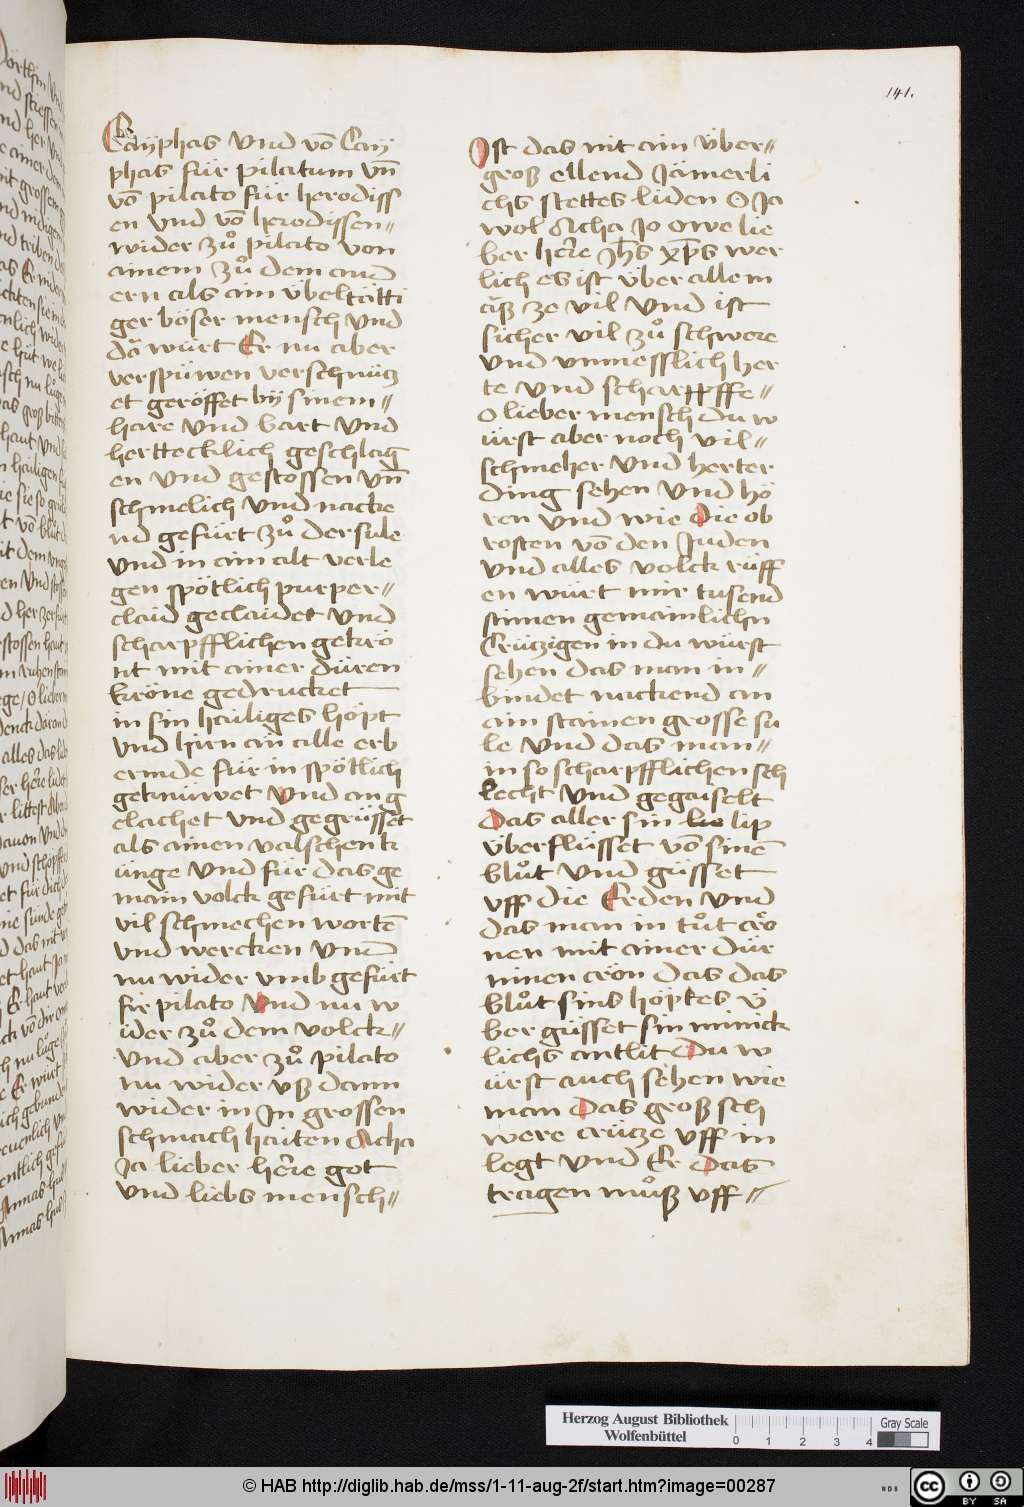 141.
Caÿphas vnd võ Caÿ
phas für pilatum vñ
võ pilato für herodiss
en vnd võ herodissen〃
wider zuͦ pilato von
ainem zuͦ dem and
ern als ain übeltätti
ger böser mensch vnd
da würt Er nu aber
verspüwen verschmütz
et geröffet bÿ sinem〃
hare vnd bart vnd
herttecklich geschlag
en vnd gestossen vñ
schmelich vnd nacke
nd gefürt zuͦ der sule
vnd in ain alt verle
gen spötlich purper〃
claid geclaidet vnd
scharpfflichen gekrö
nt mit ainer düren
kröne gedrucket
in sin hailiges höpt
vnd hirn an alle erb
ermde für in spötlich
geknüwet vnd ang
elachet vnd gegrüsset
als ainen valschen k
ünge vnd für das ge
main volck gefürt mit
vil schmechen wortẽ
vnd wercken vnd
nu wider vmb gefürt
für pilato vnd nu w
ider zuͦ dem volck〃
vnd aber zuͦ pilato
nu wider vß dann
wider in Jn grossen
schmach haiten Acha
Ja lieber herre got
vnd liebs mensch〃
Jst das nit ain über〃
groß ellend Jämerli
chs stettes liden O Ja
wol Acha Jo owe lie
ber herre Jhs xps wer
lich es ist über alle m
äß ze vil vnd ist
sicher vil zuͦ schwere
vnd vnmesslich her
te vnd scharpffe〃
O lieber mensch du w
ürst aber noch vil〃
schmeher vnd herter
ding sehen vnd hö
ren vnd wie die ob
rosten võ den Juden
vnd alles volck rüff
en würt mir tusend
stimen gemainlichn
Crützigen in du würst
sehen das man in〃
bindet nackend an
ain stainen grosse su
le vnd das man〃
in so scharpfflichen sch
lecht vnd gegaiselt
das aller sin lip
überflüsset võ sinẽ
bluͦt vnd güsset
vff die Erden vnd
das man in tuͦt crö
nen mit ainer dür
ninen crön das das
bluͦt sins höptes ü
ber güsset sin minick
lichs antlit du w
ürst auch sehen wie
man das groß sch
were crütze vff in
legt vnd Er das
tragen muͦß vff〃
Herzog August Bibliothek
Wolfenbüttel
0 1 2 3 4
Gray Scale
© HAB http://diglib.hab.de/mss/1-11-aug-2f/start.htm?image=00287
WDB
cc BY SA